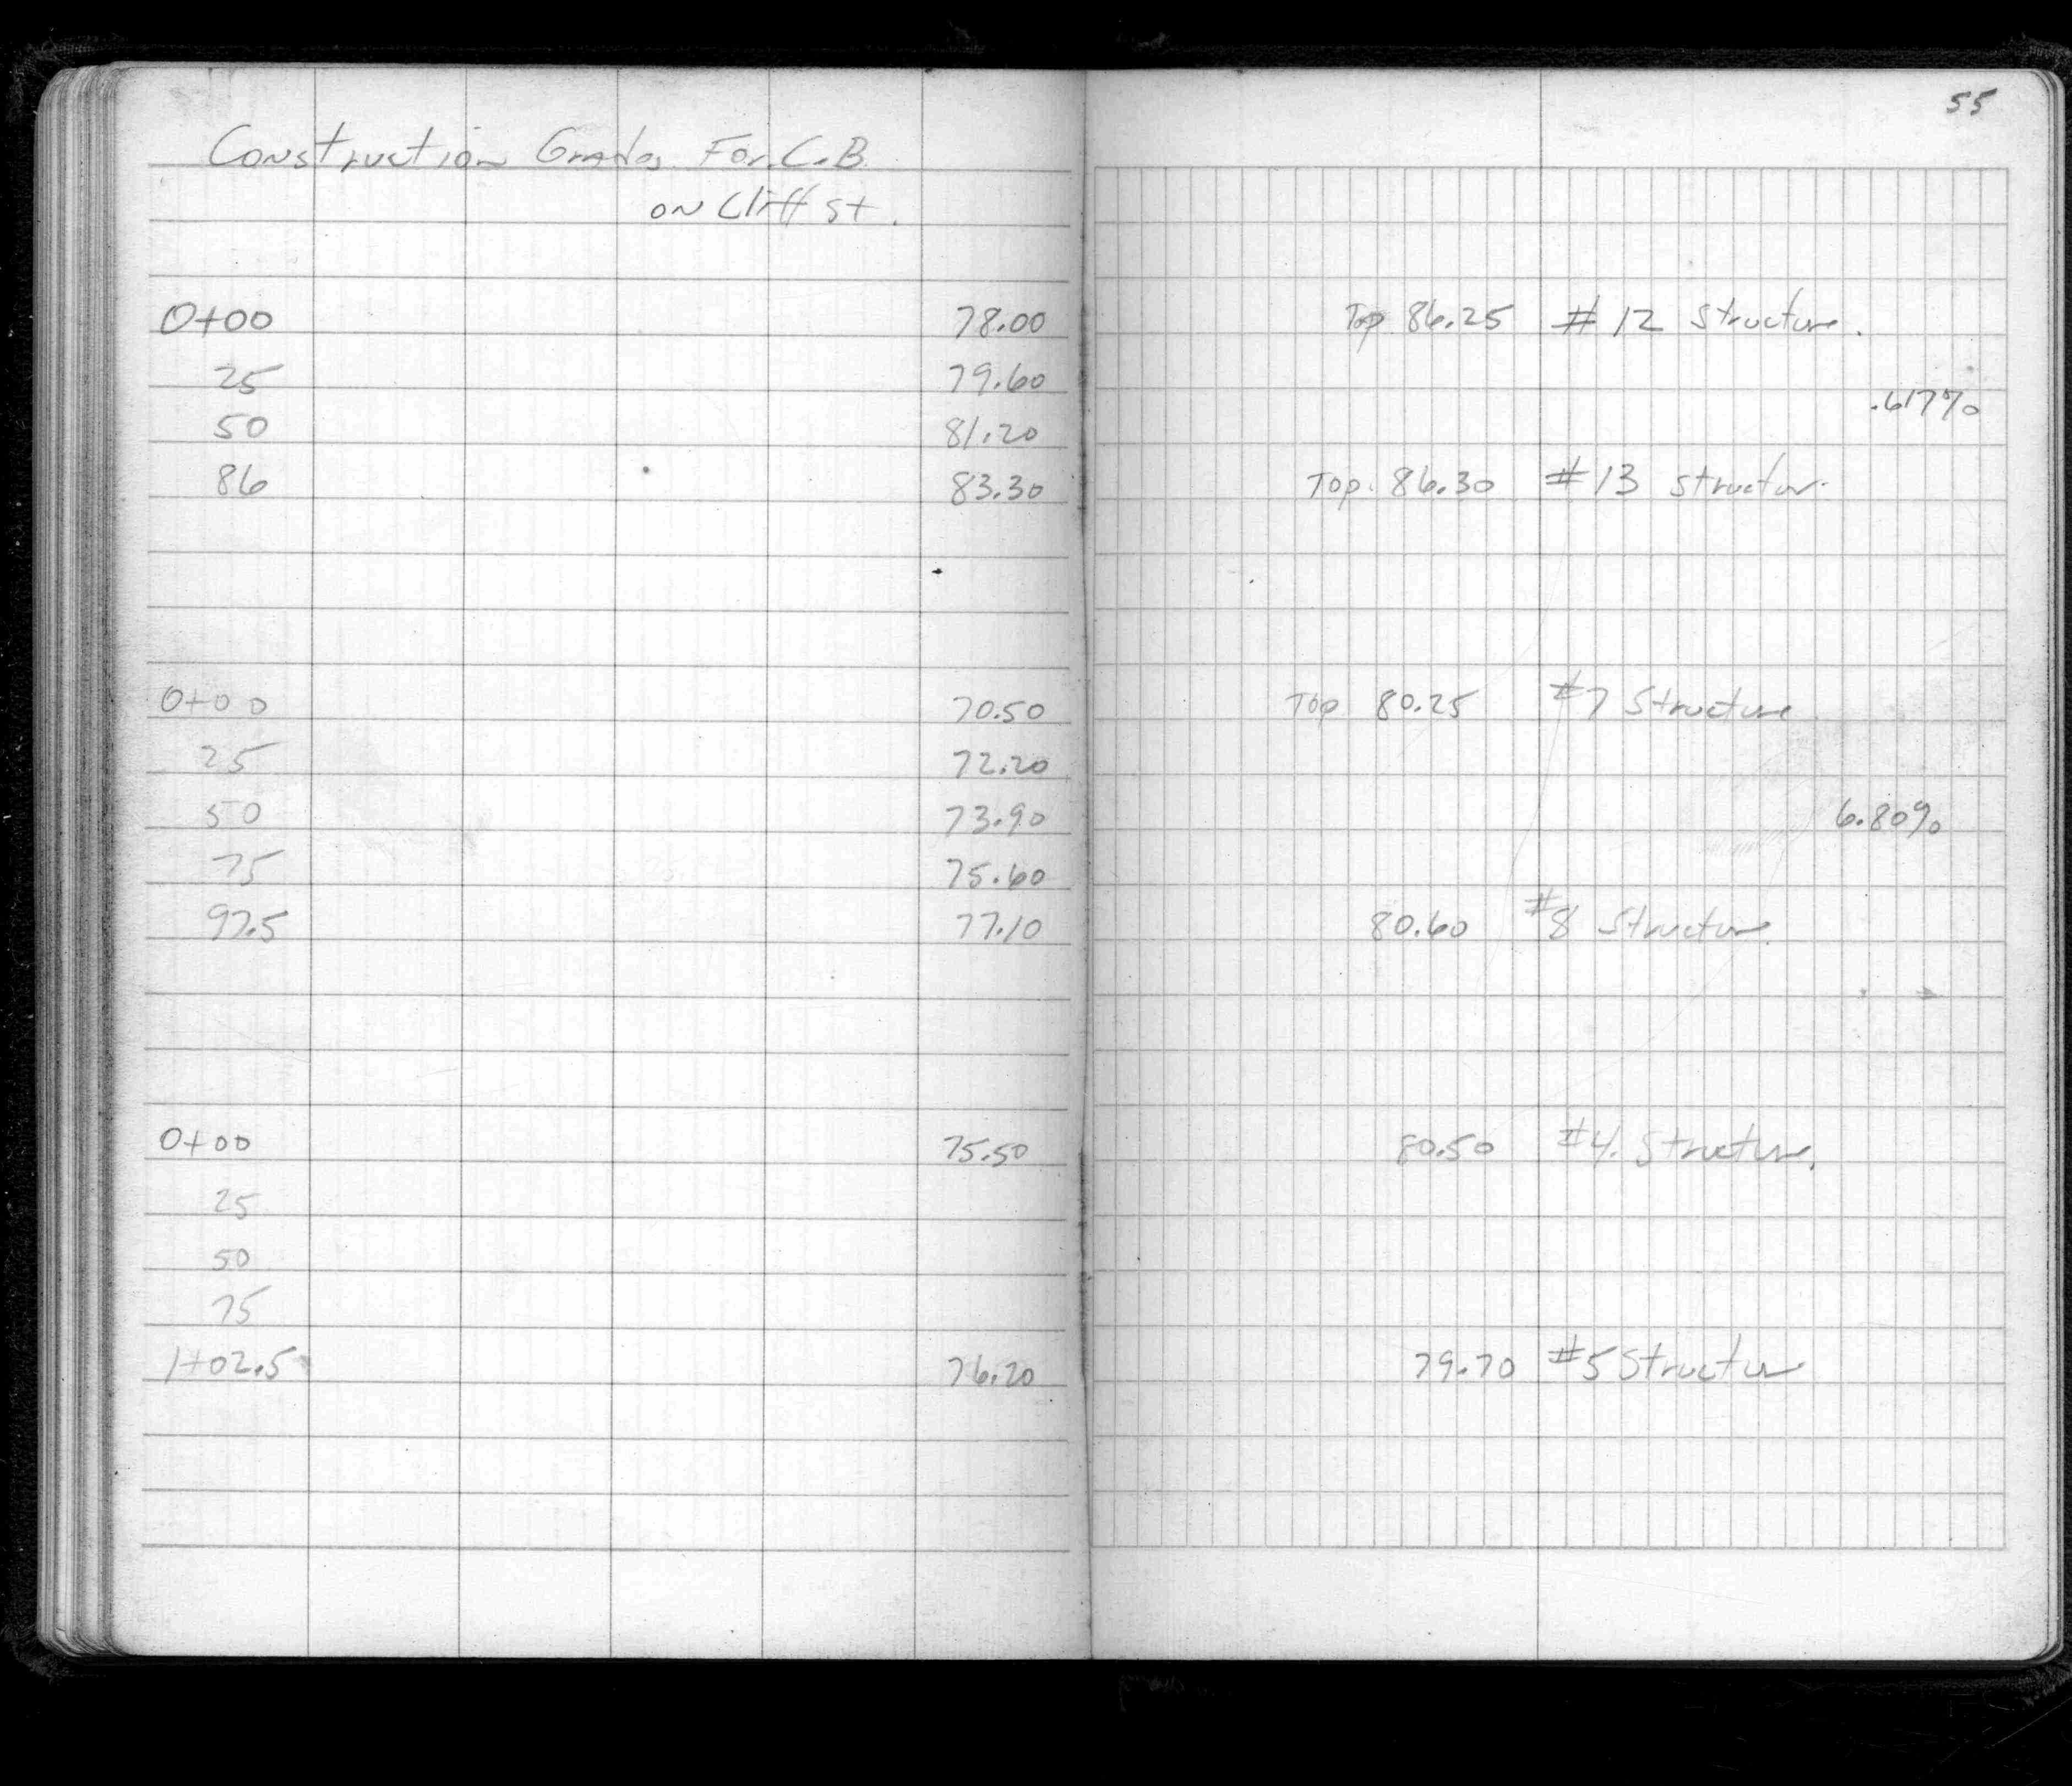 55
Construction Grades For C.B.
on Cliff St.
0+00 78.00 Top 86.25 # 12 Structure.
25 79.60
.617%
50 81.20
86 83.30 Top. 86.30 # 13 Structur.
0+00 70.50 Top 80.25 #7 Structure
25 72.20
50 73.90 6.80%
75 75.60
97.5 77.10 80.60 #8 Structur
0+00 75.50 80.50 #4. Structure.
25
50
75
1+02.5 76.20 79.70 #5 Structur